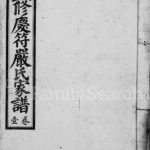 修慶符嚴氏家譜
卷壹
FamilySearch